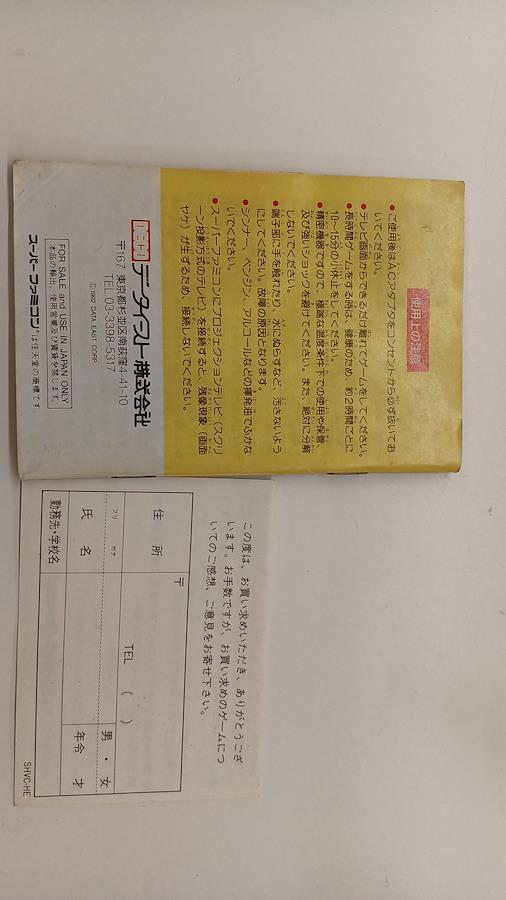 使用上の注意
●ご使用後はACアダプタをコンセントから必ず抜いてお
いてください。
●テレビ画面からできるだけ離れてゲームをしてください。
●長時間ゲームをする時は、健康のため、約2時間ごとに
10〜15分の小休止をしてください。
●精密機器ですので、極端な温度条件下での使用や保管、
及び強いショックを避けてください。また、絶対に分解
しないでください。
●端子部に手を触れたり、水にぬらすなど、汚さないよう
にしてください。故障の原因となります。
●シンナー、ベンジン、アルコールなどの揮発油でふかな
いでください。
●スーパーファミコンにプロジェクションテレビ(スクリ
ーン投影方式のテレビ)を接続すると、残像現象(画面
ヤケ)が生ずるため、接続しないでください。
データイースト株式会社
〒167 東京都杉並区南荻窪4-41-10
TEL 03-3398-5317
© 1992 DATA EAST CORP.
FOR SALE and USE IN JAPAN ONLY
本品の輸出、使用営業及び賃貸を禁じます。
スーパーファミコンは任天堂の商標です。
この度は、お買い求めいただき、ありがとうござ
います。お手数ですが、お買い求めのゲームにつ
いてのご感想、ご意見をお寄せ下さい。
住所
〒
TEL ( )
フリ ガナ
氏名
男・女
年令 才
勤務先・学校名
SHVC-HE